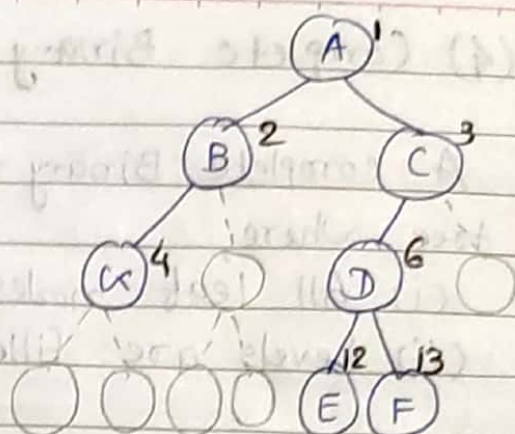 A 1
B 2 C 3
G 4 D 6
E 12 F 13